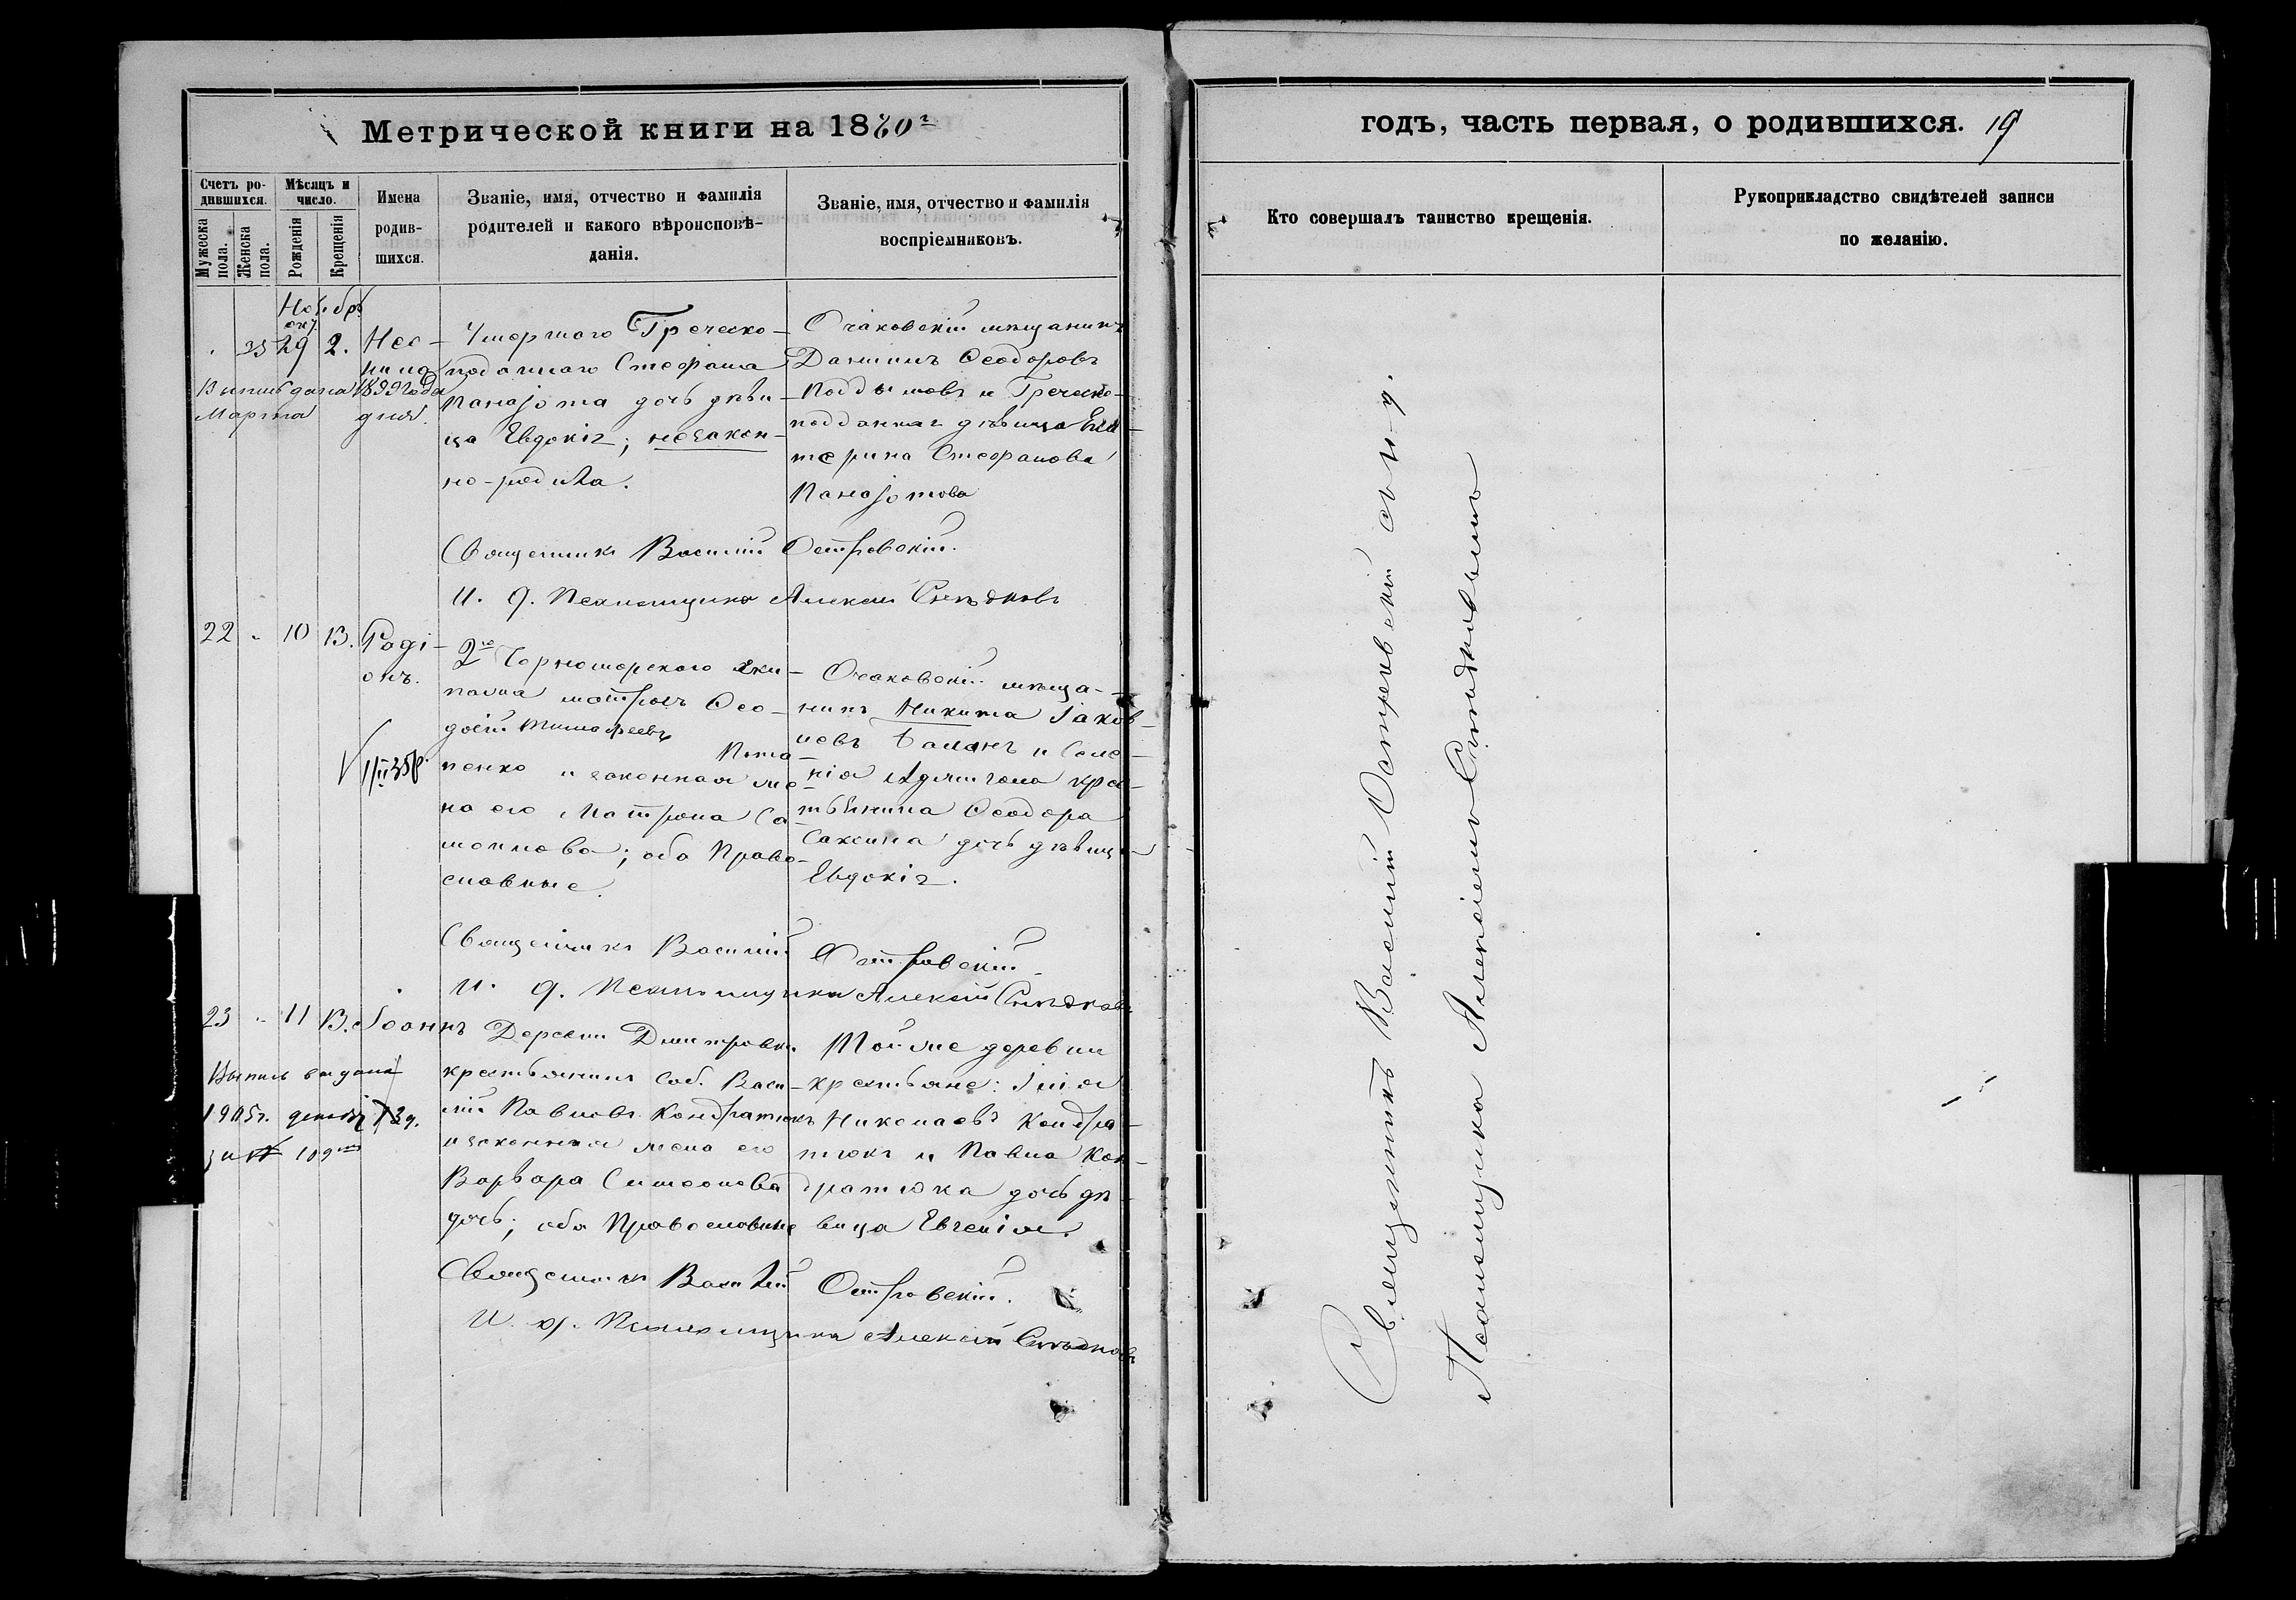 Метрической книги на 1880г
Счетъ ро-
дившихся.
Мужеска
пола.
Женска
пола.
Мѣсяцъ и
число.
Рожденія
Крещенія
Имена
родив-
шихся.
Званіе, имя, отчество и фамилія
родителей и какого вѣроисповѣ-
данія.
Званіе, имя, отчество и фамилія
воспріемниковъ.
Ноябрь
окт.
29 2. Нео-
нила
Выпись дана 1899 года
Марта дня.
Умершаго Греческо-
подданаго Стефана
Панаjота дочь дѣви-
ца Евдокія; незакон-
но-родила.
Очаковскій мѣщанинъ
Даніилъ Ѳеодоровъ
Поддымовъ и Греческо-
подданная дѣвица Ека-
терина Стефанова
Панаjотова
Священникъ Василій Островскій.
И. д. Псаломщика Алексѣй
22 " 10 13. Родi-
онъ.
2го Черноморскаго эки-
пажа матросъ Ѳео-
досій Тимофеевъ
Пота-
пенко и законная же-
на его Матрона Са-
мойлова; оба Право-
славные.
Очаковскій мѣща-
нинъ Никита Іаков-
левъ Баланъ и Селе-
нія Аджигола крес-
тьянина Ѳеодора
Саккила дочь дѣвица
Евдокія.
Священникъ Василій Островскій
И. д. Псаломщика Алексѣй
23 " 11 13. Іоаннъ
Выпись выдана
1905г. декабр 13 д.
за № 109
Деревни Дмитровки
крестьянинъ соб. Васи-
лій Павловъ Кондратюкъ
и законная жена его
Варвара Симеонова
дочь; оба Православные
Той же деревни
крестьяне: Іліа
Николаевъ Кондра-
тюкъ и Павла Кон-
дратюка дочь дѣ-
вица Евгенія.
Священникъ Василій Островскій.
И. д. Псаломщика Алексѣй
годъ, часть первая, о родившихся. 19
Кто совершалъ таинство крещенія.
Рукоприкладство свидѣтелей записи
по желанію.
Священникъ Василій Островскій съ и. д.
Псаломщика Алексіемъ